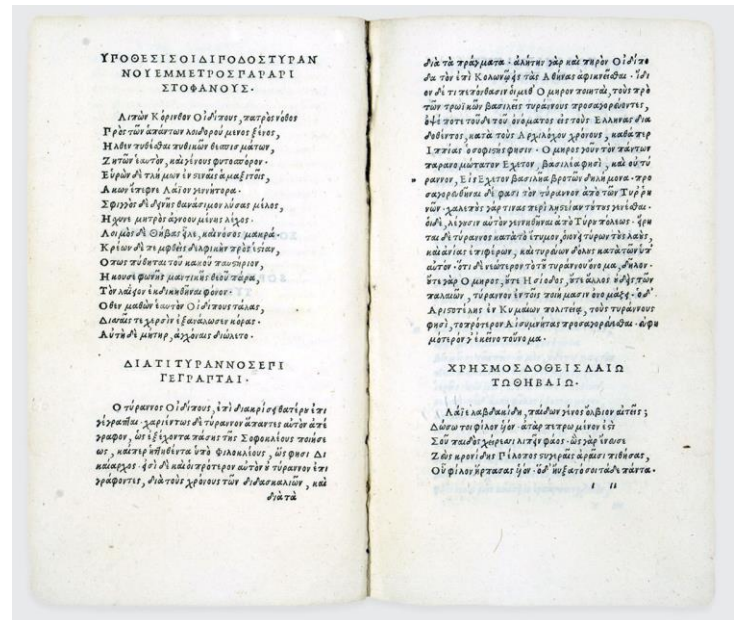 ΥΠΟΘΕΣΙΣ ΟΙΔΙΠΟΔΟΣ ΤΥΡΑΝ
ΝΟΥ ΕΜΜΕΤΡΟΣ ΠΑΡΑ ΑΡΙ
ΣΤΟΦΑΝΟΥΣ.
Λιπὼν Κόρινθον Οἰδίπους, πατρὸς νόθος
Πρὸς τῶν ἁπάντων λοιδορούμενος ξένος,
Ηλθεν πυθέσθαι πυθικῶν θεσπισμάτων,
Ζητῶν ἑαυτὸν, καὶ γένους φυτοσπόρον.
Εὑρὼν δὲ τλήμων ἐν στεναῖς ἁμαξιτοῖς,
Ακων ἔπεφνε Λάϊον γεννήτορα.
Σφιγγὸς δὲ δεινῆς θανάσιμον λύσας μέλος,
Ηχυνε μητρὸς ἀγνοουμένης λέχος.
Λοιμὸς δὲ Θήβας εἷλε, καὶ νόσος μακρά.
Κρέων δὲ πεμφθεὶς δελφικὴν πρὸς ἑστίαν,
Οπως πύθηται τοῦ κακοῦ παυστήριον,
Ηκουσε φωνῆς μαντικῆς θεοῦ πάρα,
Τὸν λαΐειον ἐκδικηθῆναι φόνον.
Οθεν μαθὼν ἑαυτὸν Οἰδίπους τάλας,
Δισσαῖς τε χερσὶν ἐξανάλωσεν κόρας.
Αὐτὴ δὲ μήτηρ, ἀγχόναις διώλετο.
ΔΙΑ ΤΙ ΤΥΡΑΝΝΟΣ ΕΠΙ
ΓΕΓΡΑΠΤΑΙ.
Ο τύραννος Οἰδίπους, ἐπὶ διακρίσει θατέρου ἐπι
γέγραπται. χαριέντως δὲ τύραννον ἅπαντες αὐτὸν ἐπέ
γραφον, ὡς ἐξέχοντα πάσης τῆς Σοφοκλέους ποιήσε
ως, καίπερ ἡττηθέντα ὑπὸ Φιλοκλέους, ὥς φησι Δι
καίαρχος. εἰσὶ δὲ καὶ οἱ πρότερον αὐτὸν οὐ τύραννον ἐπι
γράφοντες, διὰ τοὺς χρόνους τῶν διδασκαλιῶν, καὶ
διὰ τὰ
διὰ τὰ πράγματα. ἀλήτην γὰρ καὶ πηρὸν Οἰδίπο
δα τὸν ἐπὶ Κολωνῷ εἰς τὰς Αθήνας ἀφικνεῖσθαι. ἴδι
ον δέ τι πεπόνθασιν οἱ μεθ' Ομηρον ποιηταὶ, τοὺς πρὸ
τῶν τρωϊκῶν βασιλεῖς τυράννους προσαγορεύοντες,
ὀψέ ποτε τοῦδε τοῦ ὀνόματος εἰς τοὺς Ελληνας δια
δοθέντος, κατὰ τοὺς Αρχιλόχου χρόνους, καθάπερ
Ιππίας ὁ σοφιστής φησιν. Ομηρος γοῦν τὸν πάντων
παρανομώτατον Εχετον, βασιλέα φησὶ, καὶ οὐ τύ
ραννον, Εἰς Εχετον βασιλῆα βροτῶν δηλήμονα. προ
σαγορευθῆναι δέ φασι τὸν τύραννον ἀπὸ τῶν Τυρρη
νῶν. χαλεποὺς γάρ τινας περὶ λῃστείαν τούτους γενέσθαι.
οἱ δὲ, λέγουσιν αὐτὸν γεννηθῆναι ἀπὸ Τυρύπόλεως. εἴρη
ται δὲ τύραννος κατὰ τὸ ἔτυμον, οἱονεὶ τύρων τοὺς λαοὺς,
καὶ ἀνίας ἐπιφέρων,
αὐτόν. ὅτι δὲ νεώτερον τὸ τοῦ τυράννου ὄνομα, δῆλον.
οὔτε γὰρ Ομηρος, οὔτε Ησίοδος, οὔτε ἄλλος οὐδεὶς τῶν
παλαιῶν, τύραννον ἐν τοῖς ποιήμασιν ὀνομάζει. ὁ δ'
Αριστοτέλης ἐν Κυμαίων πολιτείᾳ, τοὺς τυράννους
φησὶ, τοπρότερον Αἰσυμνήτας προσαγορεύεσθαι. εὐφη
μότερον γὰρ ἐκεῖνο τοὔνομα.
ΧΡΗΣΜΟΣ ΔΟΘΕΙΣ ΛΑΙΩ
ΤΩ ΘΗΒΑΙΩ.
Λάϊε λαβδακίδη, παίδων γένος ὄλβιον αἰτεῖς;
Δώσω τοι φίλον υἱόν. ἀτὰρ πεπρωμένον ἐστὶ
Σοῦ παιδὸς χείρεσσι λιπεῖν φάος. ὡς γὰρ ἔνευσε
Ζεὺς κρονίδης Πέλοπος στυγεραῖς ἀραῖσι πιθήσας,
Οὗ φίλον ἥρπασας υἱόν. ὁ δ' ηὔξατό σοι τάδε πάντα.